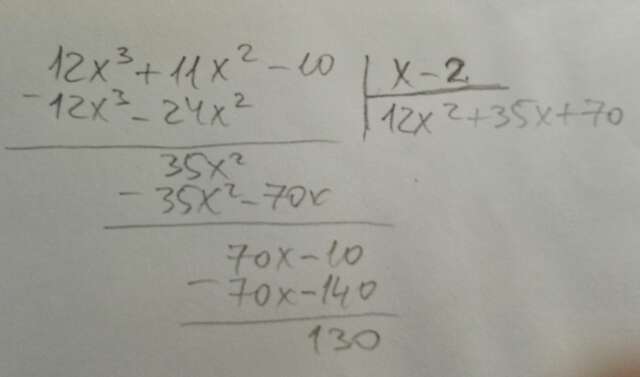 12x³ + 11x² - 10 | x - 2
- 12x³ - 24x² | 12x² + 35x + 70
35x²
- 35x² - 70x
70x - 10
- 70x - 140
130